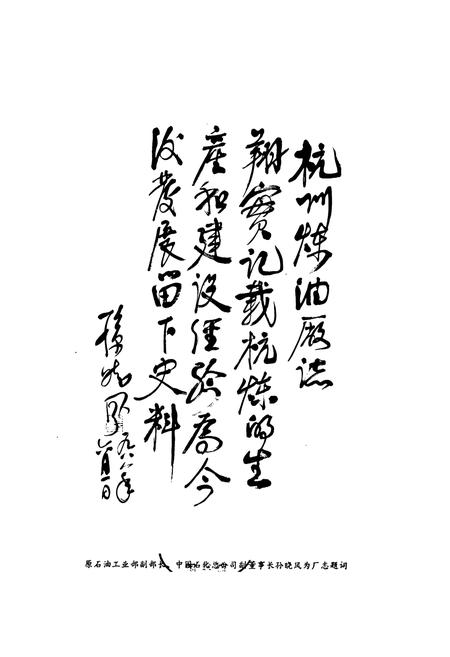 杭州炼油厰志
翔實记载杭炼的生
産和建设经验为今
後發展留下史料
孫晓风
一九八八年
六月一日
原石油工业部副部长、中国石化总公司副董事长孙晓风为厂志题词